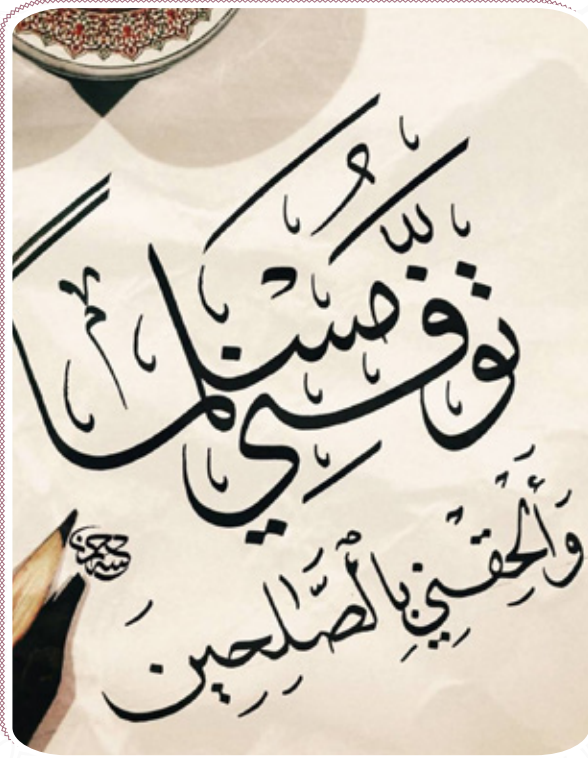 تَوَفَّنِي مُسْلِمًا
وَأَلْحِقْنِي بِالصَّالِحِينَ